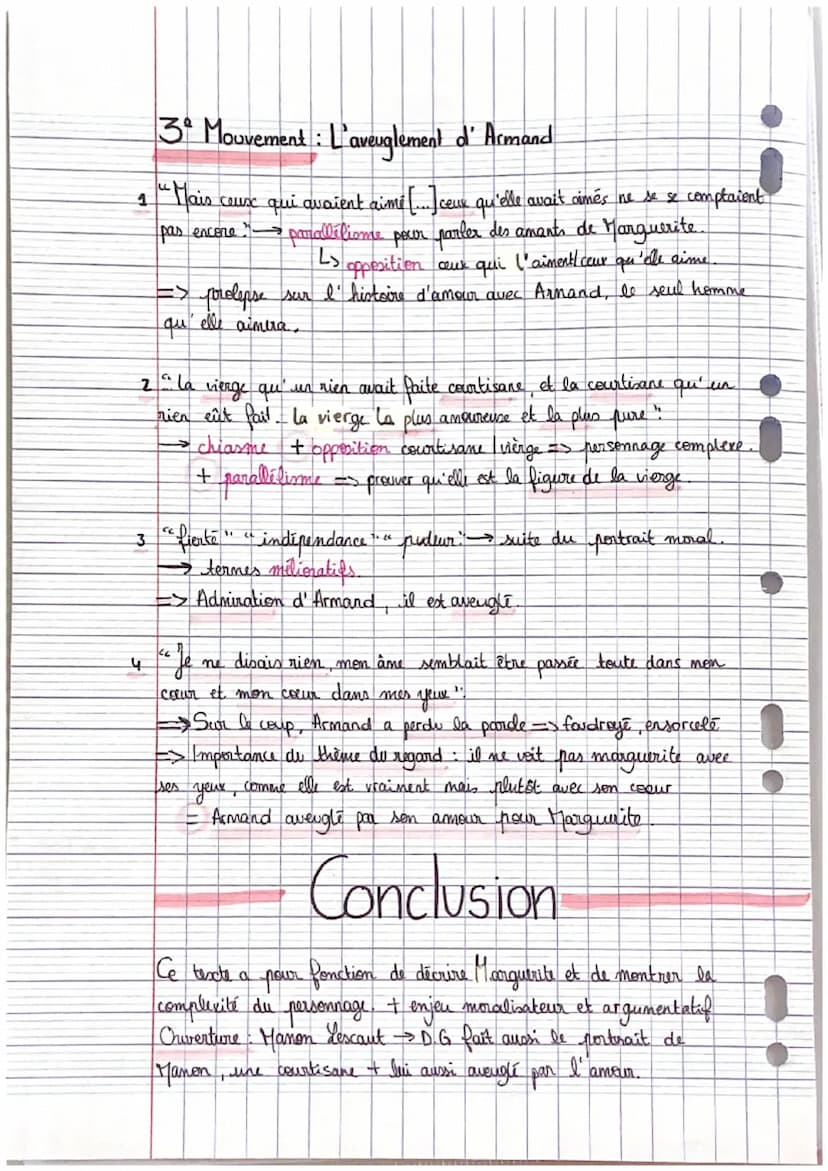 3e Mouvement : L'aveuglement d'Armand
1 "Mais ceux qui avaient aimé [...] ceux qu'elle avait aimés ne se se comptaient
pas encore." → parallélisme pour parler des amants de Marguerite.
↳ opposition ceux qui l'aiment/ceux qu'elle aime.
=> prolepse sur l'histoire d'amour avec Armand, le seul homme
qu'elle aimera.
2 "La vierge qu'un rien avait faite courtisane, et la courtisane qu'un
rien eût fait la vierge la plus amoureuse et la plus pure".
→ chiasme + opposition courtisane/vierge => personnage complexe.
+ parallélisme => prouver qu'elle est la figure de la vierge.
3 "fierté" "indépendance" "pudeur" → suite du portrait moral.
→ termes mélioratifs.
=> Admiration d'Armand, il est aveuglé.
4 "Je ne disais rien, mon âme semblait être passée toute dans mon
cœur et mon cœur dans mes yeux".
=> Sur le coup, Armand a perdu la parole => foudroyé, ensorcelé
=> Importance du thème du regard : il ne voit pas marguerite avec
ses yeux, comme elle est vraiment mais plutôt avec son cœur
= Armand aveuglé par son amour pour Marguerite.
Conclusion
Ce texte a pour fonction de décrire Marguerite et de montrer la
complexité du personnage. + enjeu moralisateur et argumentatif
Ouverture : Manon Lescaut → D.G fait aussi le portrait de
Manon, une courtisane + lui aussi aveuglé par l'amour.